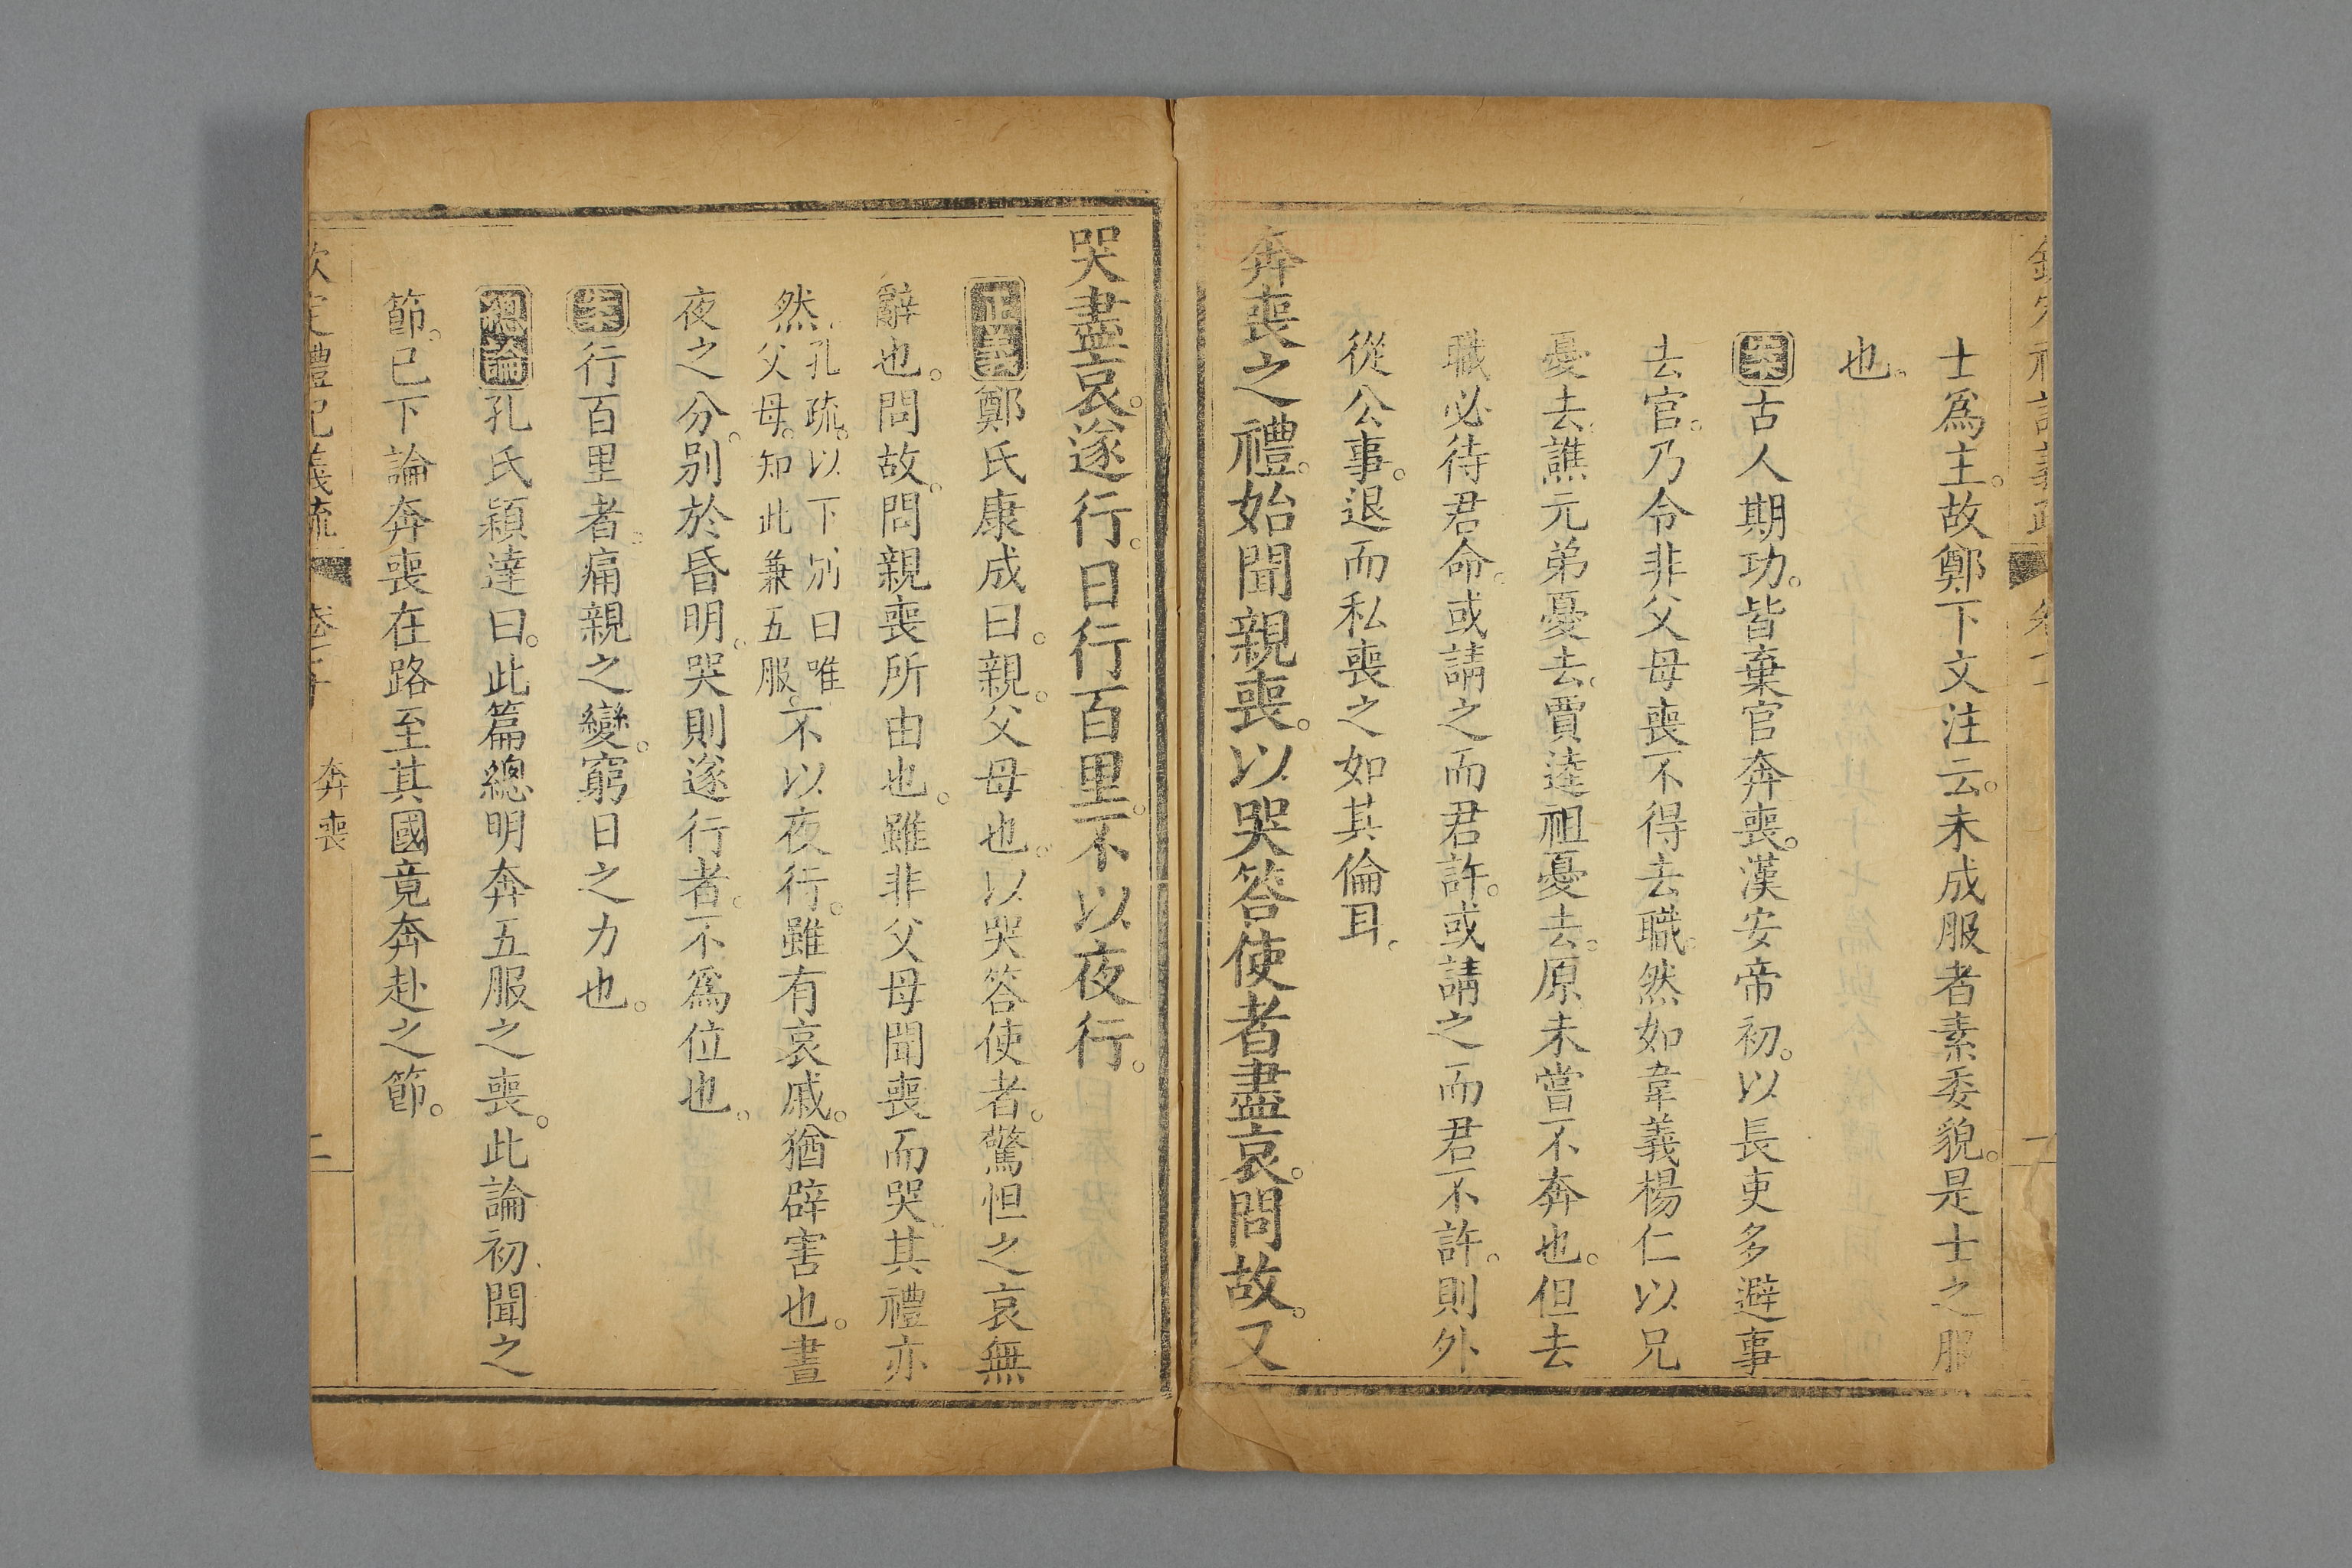 士爲主。故鄭下文注云。未成服者素委貌。是士之服
也。
案古人期功。皆棄官奔喪。漢安帝初。以長吏多避事
去官。乃令非父母喪不得去職。然如韋義楊仁以兄
憂去。譙元弟憂去。賈逵祖憂去。原未嘗不奔也。但去
職必待君命。或請之而君許。或請之而君不許。則外
從公事。退而私喪之如其倫耳。
奔喪之禮。始聞親喪。以哭答使者盡哀。問故。又
哭盡哀。遂行。日行百里。不以夜行。
正義鄭氏康成曰。親。父母也。以哭答使者。驚怛之哀無
辭也。問故。問親喪所由也。雖非父母聞喪而哭。其禮亦
然。孔疏。以下別曰唯父母。知此兼五服。不以夜行。雖有哀戚。猶辟害也。晝
夜之分。別於昏明。哭則遂行者。不爲位也。
案行百里者。痛親之變。窮日之力也。
總論孔氏穎達曰。此篇總明奔五服之喪。此論初聞之
節。已下論奔喪在路至其國竟奔赴之節。
欽定禮記義疏 奔喪 二